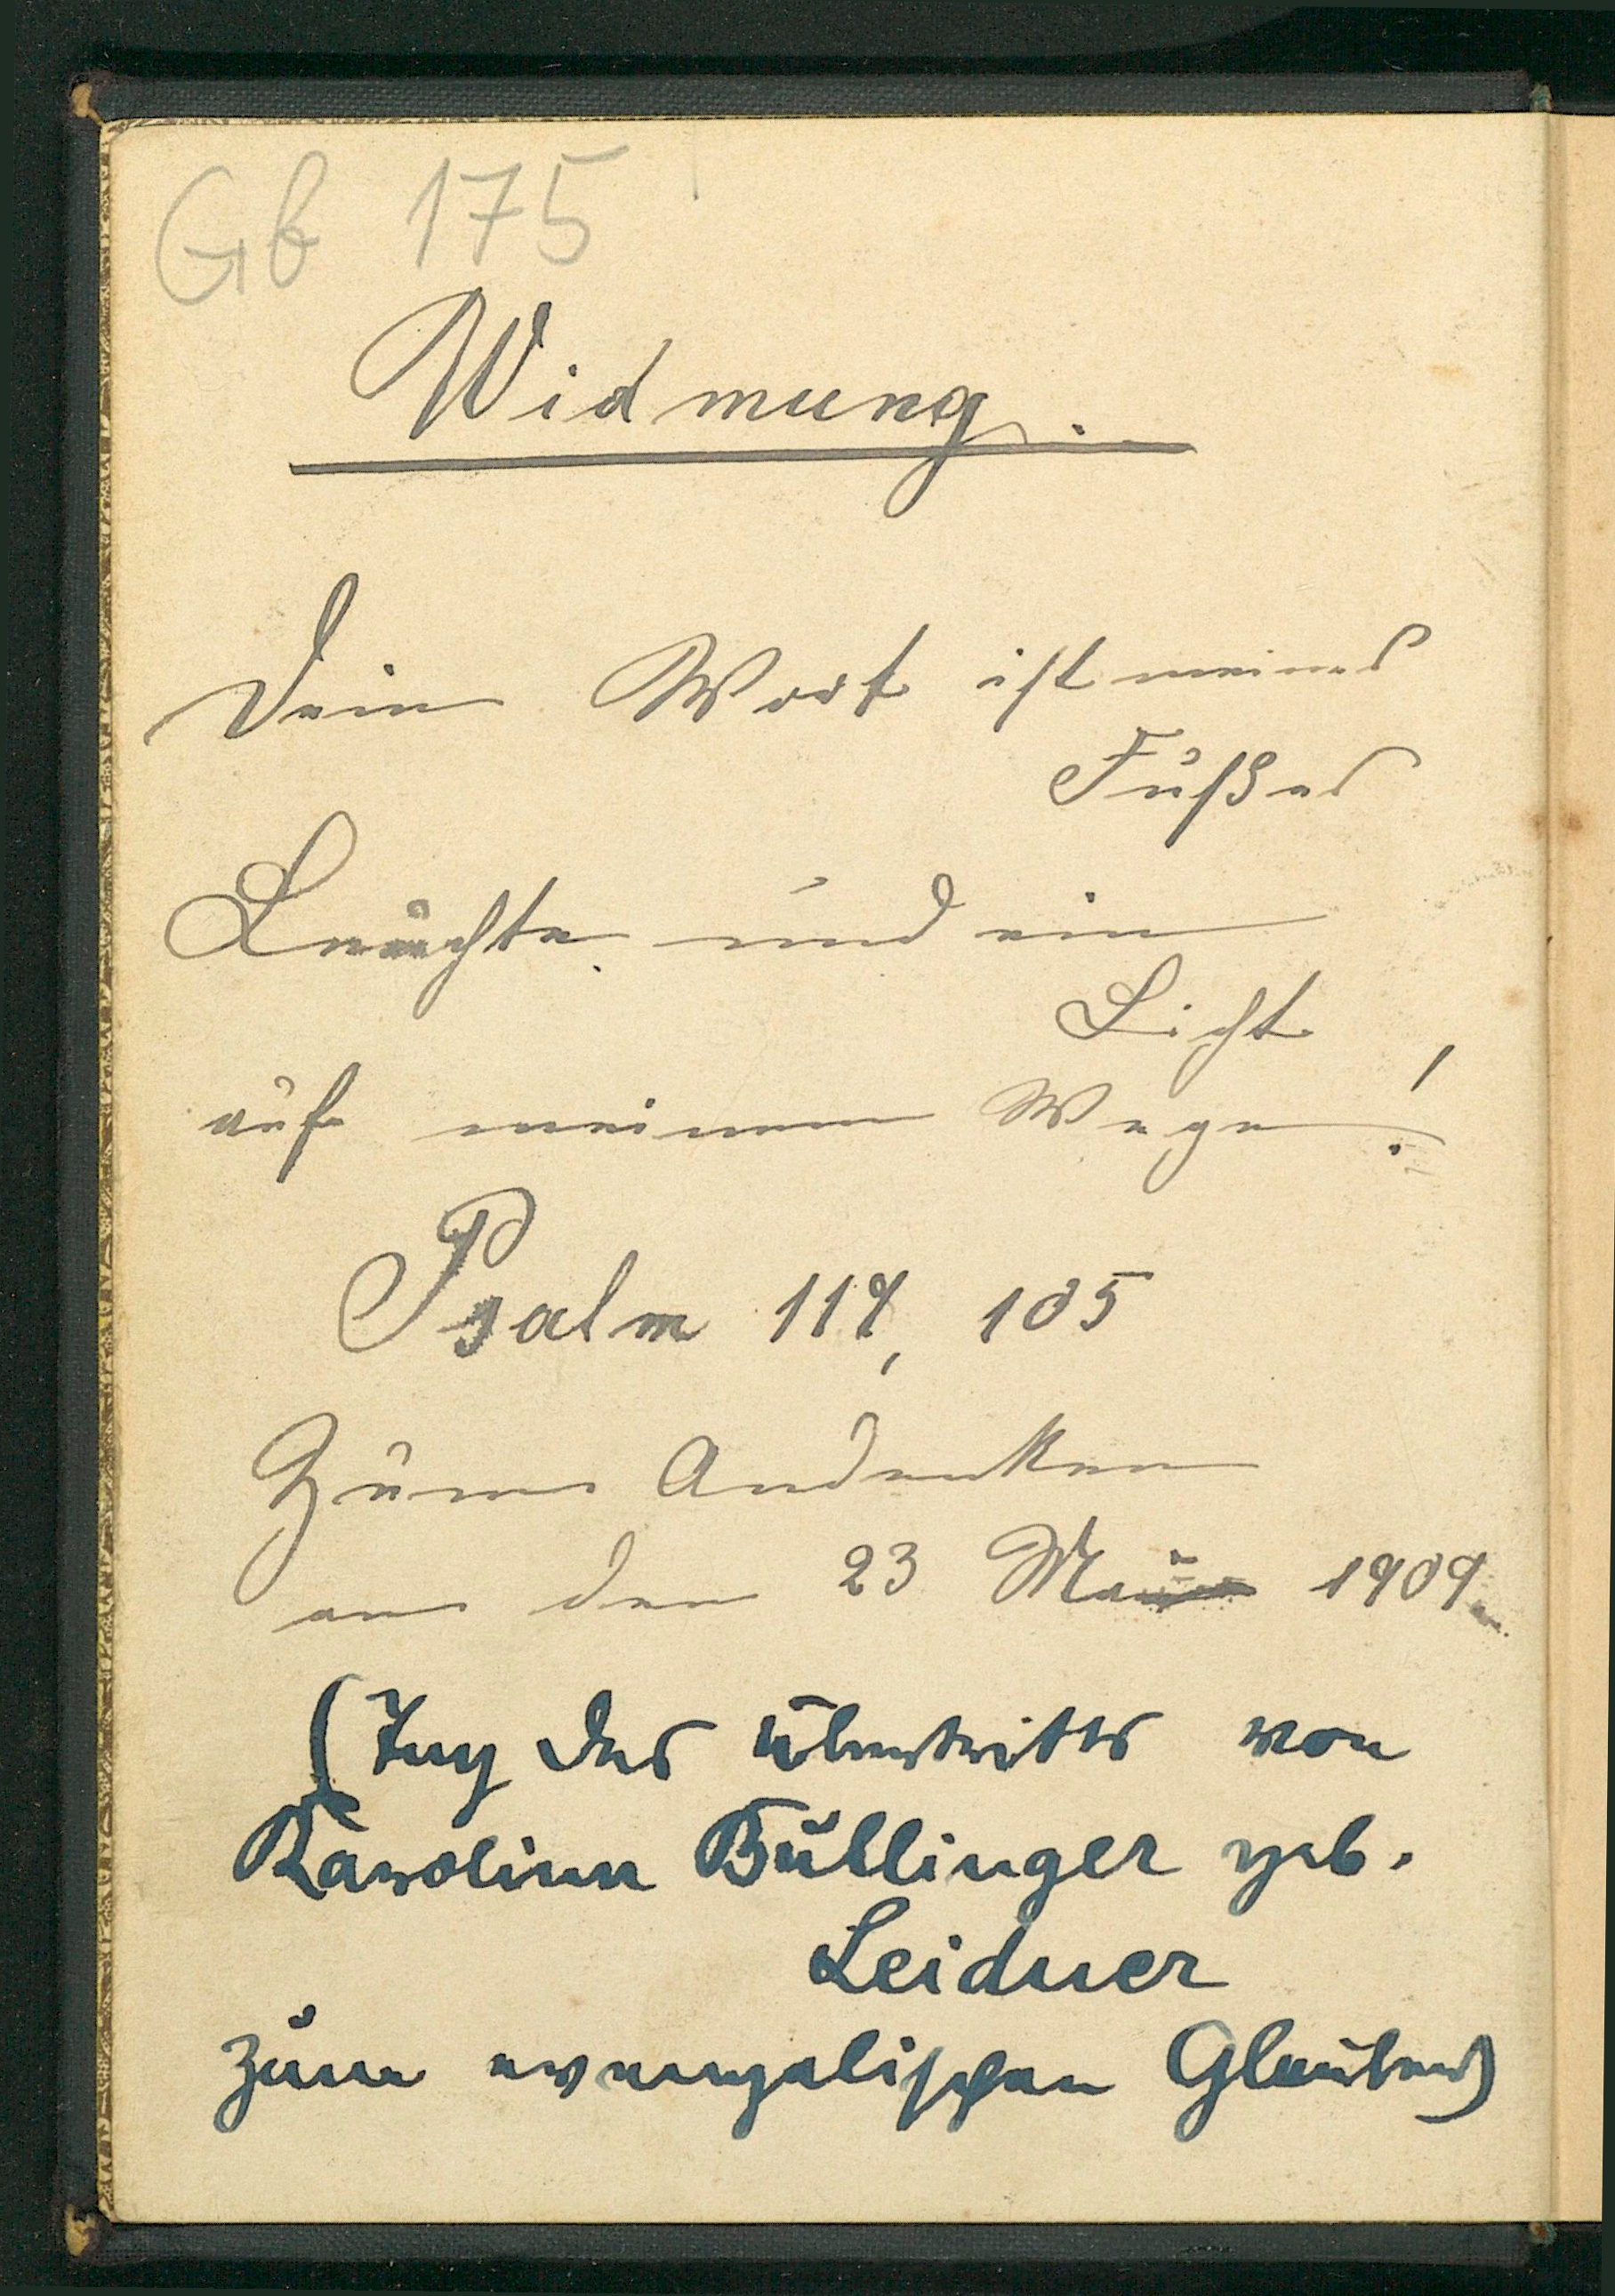 Gb 175
Widmung.
Dein Wort ist meines
Fußes
Leuchte und ein
Licht
auf meinem Wege!
Psalm 119, 105
Zum Andenken
an den 23 Mai 1909.
(Tag des Übertritts von
Karoline Büllinger geb.
Leidner
zum evangelischen Glauben)